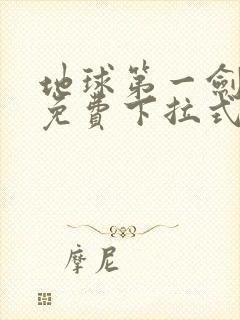 地球第一劍
免費下拉式
摩尼